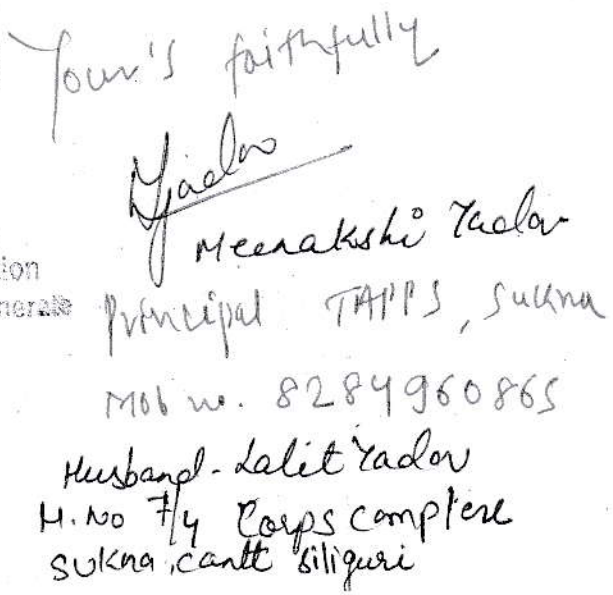 Your's faithfully
Yadav
Meenakshi Yadav
ion
nerale
Principal TAPPS, Sukna
Mob no. 8284960865
Husband - Lalit Yadav
H. No 7/4 Corps complexe
Sukna, cantt siliguri